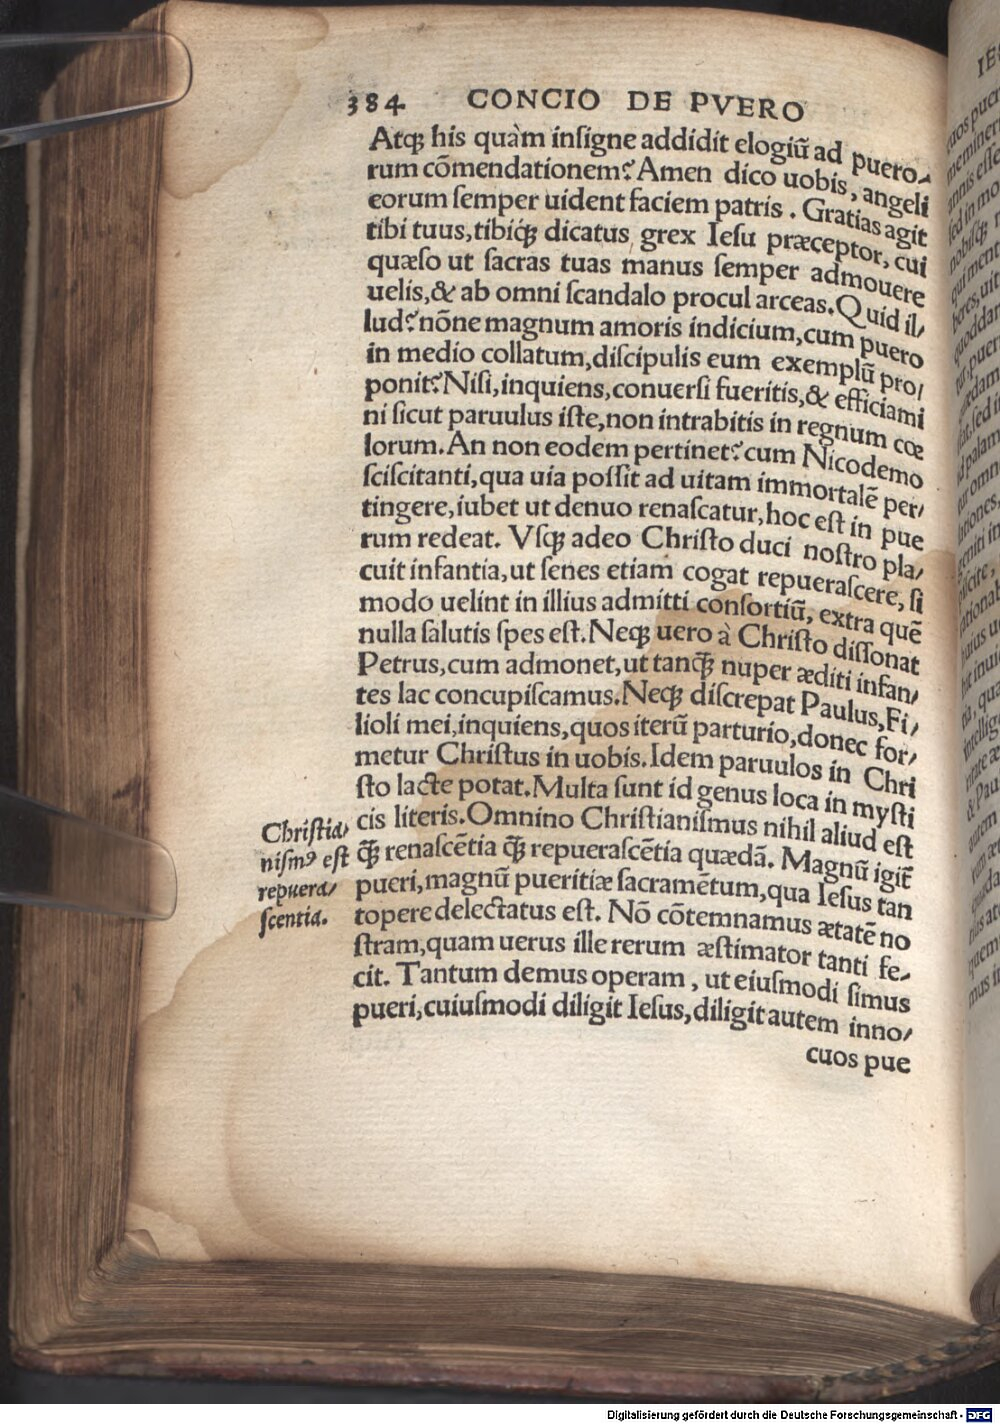 384 CONCIO DE PVERO
Atqꝫ his quàm inſigne addidit elogiū ad puero-
rum cōmendationem? Amen dico uobis, angeli
eorum ſemper uident faciem patris. Gratias agit
tibi tuus, tibiqꝫ́ dicatus grex Ieſu præceptor, cui
quæſo ut ſacras tuas manus ſemper admouere
uelis, & ab omni ſcandalo procul arceas. Quid il/
lud? nōne magnum amoris indicium, cum puero
in medio collatum, diſcipulis eum exemplū pro/
ponit? Niſi, inquiens, conuerſi fueritis, & efficiami
ni ſicut paruulus iſte, non intrabitis in regnum cœ
lorum. An non eodem pertinet? cum Nicodemo
ſciſcitanti, qua uia poſſit ad uitam immortalē per/
tingere, iubet ut denuo renaſcatur, hoc eſt in pue
rum redeat. Vſqꝫ adeo Chriſto duci noſtro pla/
cuit infantia, ut ſenes etiam cogat repueraſcere, ſi
modo uelint in illius admitti conſortiū, extra quē
nulla ſalutis ſpes eſt. Neqꝫ uero à Chriſto diſſonat
Petrus, cum admonet, ut tanqꝫ̄ nuper æditi infan/
tes lac concupiſcamus. Neqꝫ diſcrepat Paulus, Fi/
lioli mei, inquiens, quos iterū parturio, donec for/
metur Chriſtus in uobis. Idem paruulos in Chri
ſto lacte potat. Multa ſunt id genus loca in myſti
cis literis. Omnino Chriſtianiſmus nihil aliud eſt
qꝫ̄ renaſcētia qꝫ̄ repueraſcētia quædā. Magnū igit᷑
pueri, magnū pueritiæ ſacramētum, qua Ieſus tan
topere delectatus eſt. Nō cōtemnamus ætatē no
ſtram, quam uerus ille rerum æſtimator tanti fe-
cit. Tantum demus operam, ut eiuſmodi ſimus
pueri, cuiuſmodi diligit Ieſus, diligit autem inno/
cuos pue
Chriſtia/
niſmꝰ eſt
repuera/
ſcentia.
Digitalisierung gefördert durch die Deutsche Forschungsgemeinschaft - DFG